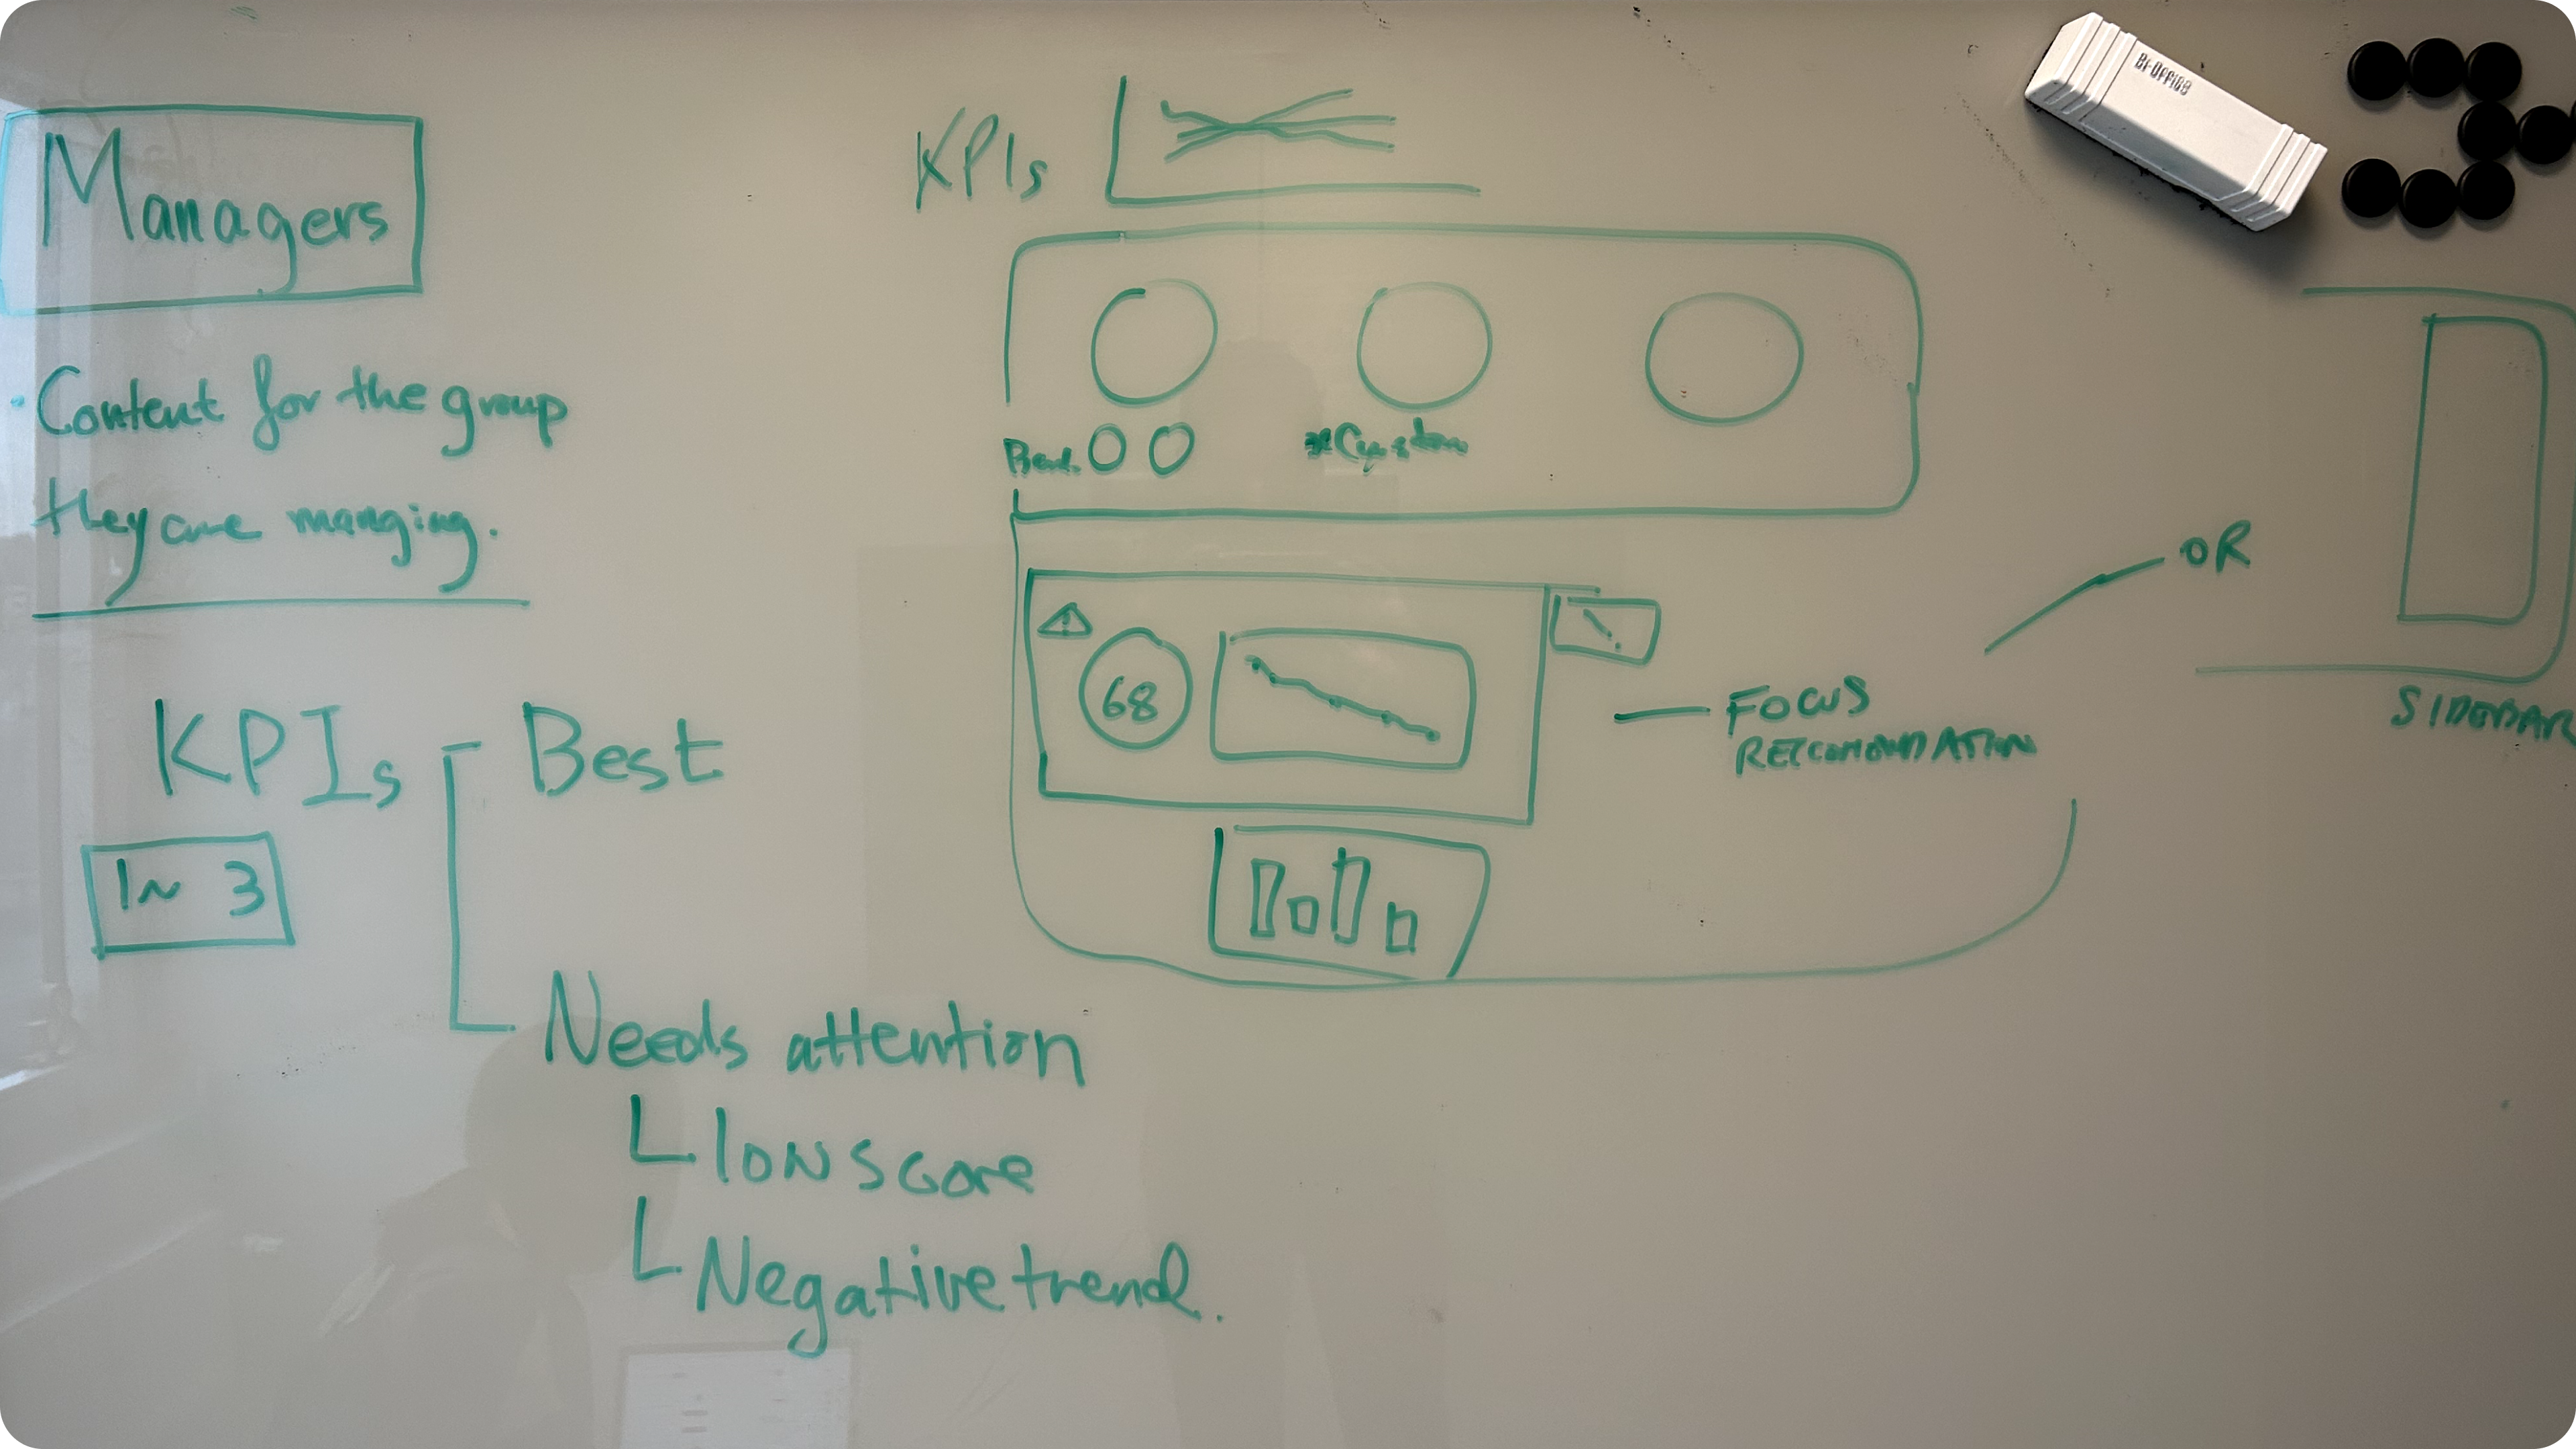 Managers
· Content for the group
they are manging.
KPIs
Best
1~ 3
Needs attention
low score
Negative trend.
KPIs
*Custom
68
FOCUS
OR
SIDEBAR